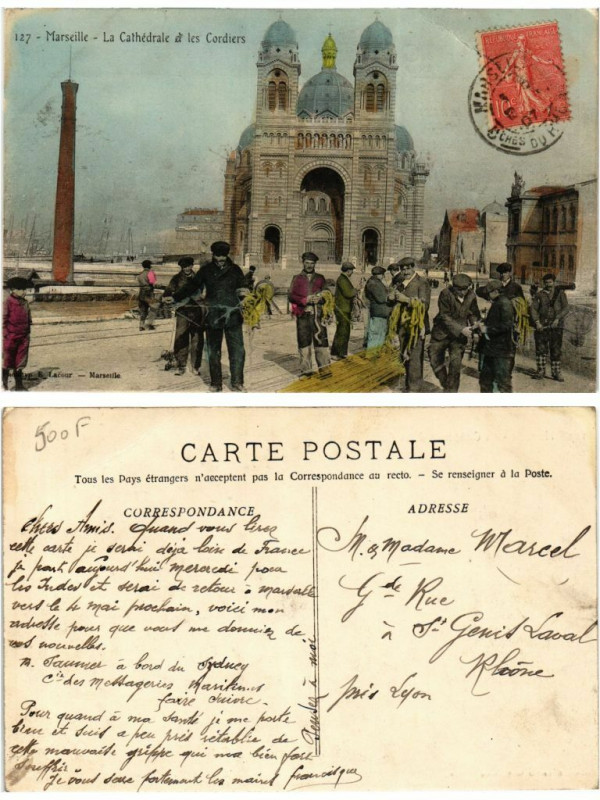 127 - Marseille - La Cathédrale & les Cordiers
Lacour — Marseille
500F
CARTE POSTALE
Tous les Pays étrangers n'acceptent pas la Correspondance au recto. – Se renseigner à la Poste.
CORRESPONDANCE
Chers Amis. Quand vous lirez
cette carte je serai déja loin de France
Je part aujourd'hui mercredi pour
les Indes et serai de retour a Marseille
vers le 4 mai prochain, voici mon
adresse pour que vous me donniez de
vos nouvelles.
M. Saunier à bord du Sydney
Cie des Messageries Maritimes
faire suivre.
Pour quand à ma santé je me porte
bien et suis a peu près rétablie de
cette mauvaise grippe qui ma bien fait
souffrir
Je vous serre fortement les mains
Pensez à moi
ADRESSE
M. & Madame Marcel
Gde Rue
à St Genis Laval
Rhône
près Lyon